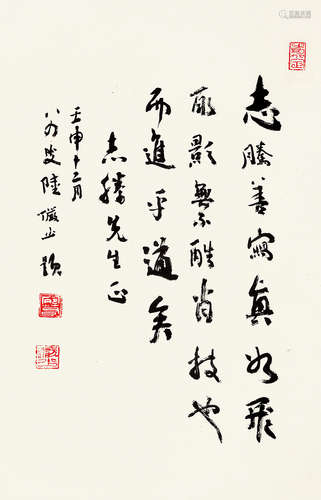 志騰善寫真如飛
取影無不酷肖技也
而進乎道矣
志騰先生正
壬申十二月
八四叟陸儼少題